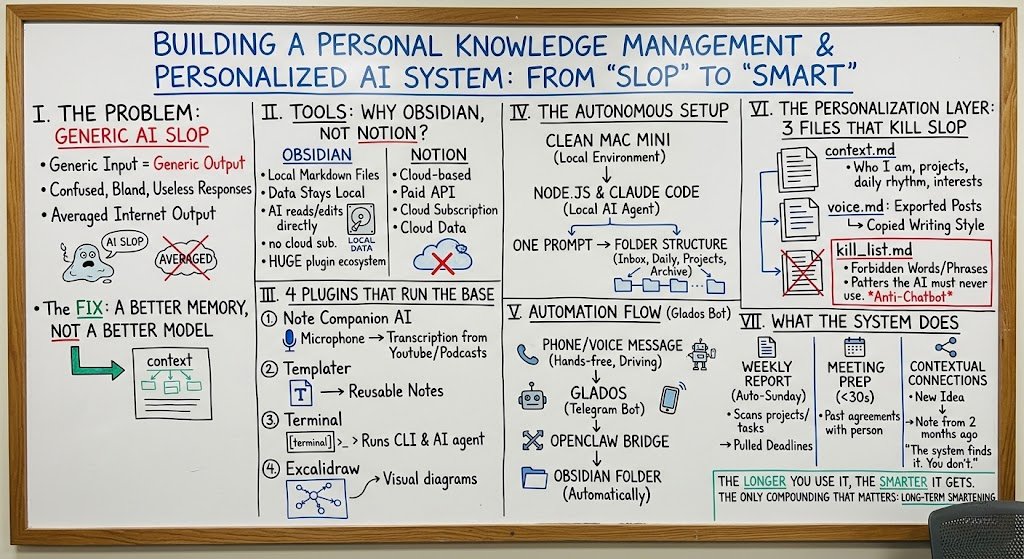 BUILDING A PERSONAL KNOWLEDGE MANAGEMENT &
PERSONALIZED AI SYSTEM: FROM “SLOP” TO “SMART”
I. THE PROBLEM:
GENERIC AI SLOP
• Generic Input = Generic Output
• Confused, Bland, Useless Responses
• Averaged Internet Output
AI SLOP
AVERAGED
• The FIX: A BETTER MEMORY,
NOT A BETTER MODEL
context
II. TOOLS: WHY OBSIDIAN,
NOT NOTION?
OBSIDIAN
• Local Markdown Files
• Data Stays Local
• AI reads/edits
directly
• no cloud sub.
• HUGE plugin ecosystem
LOCAL
DATA
NOTION
• Cloud-based
• Paid API
• Cloud Subscription
• Cloud Data
III. 4 PLUGINS THAT RUN THE BASE
① Note Companion AI
Microphone → Transcription from
Youtube/Podcasts
② Templater
T → Reusable Notes
③ Terminal
[terminal] >_ > Runs CLI & AI agent
④ Excalidraw
Visual diagrams
IV. THE AUTONOMOUS SETUP
CLEAN MAC MINI
(Local Environment)
NODE.JS & CLAUDE CODE
(Local AI Agent)
ONE PROMPT → FOLDER STRUCTURE
(Inbox, Daily, Projects,
Archive)
V. AUTOMATION FLOW (Glados Bot)
PHONE/VOICE MESSAGE
(Hands-free, Driving)
GLADOS
(Telegram Bot)
OPENCLAW BRIDGE
OBSIDIAN FOLDER
(Automatically)
VI. THE PERSONALIZATION LAYER:
3 FILES THAT KILL SLOP
context.md
• Who I am, projects,
daily rhythm, interests
voice.md: Exported Posts
↳ Copied Writing Style
kill_list.md
• Forbidden Words/Phrases
• Patters the AI must never
use. *Anti-Chatbot*
VII. WHAT THE SYSTEM DOES
WEEKLY
REPORT
(Auto-Sunday)
• Scans projects/
tasks
→ Pulled Deadlines
MEETING
PREP
(<30s)
• Past agreements
with person
CONTEXTUAL
CONNECTIONS
• New Idea
↓
→ Note from 2
months ago
"The system finds
it. You don't."
THE LONGER YOU USE IT, THE SMARTER IT GETS.
THE ONLY COMPOUNDING THAT MATTERS: LONG-TERM SMARTENING